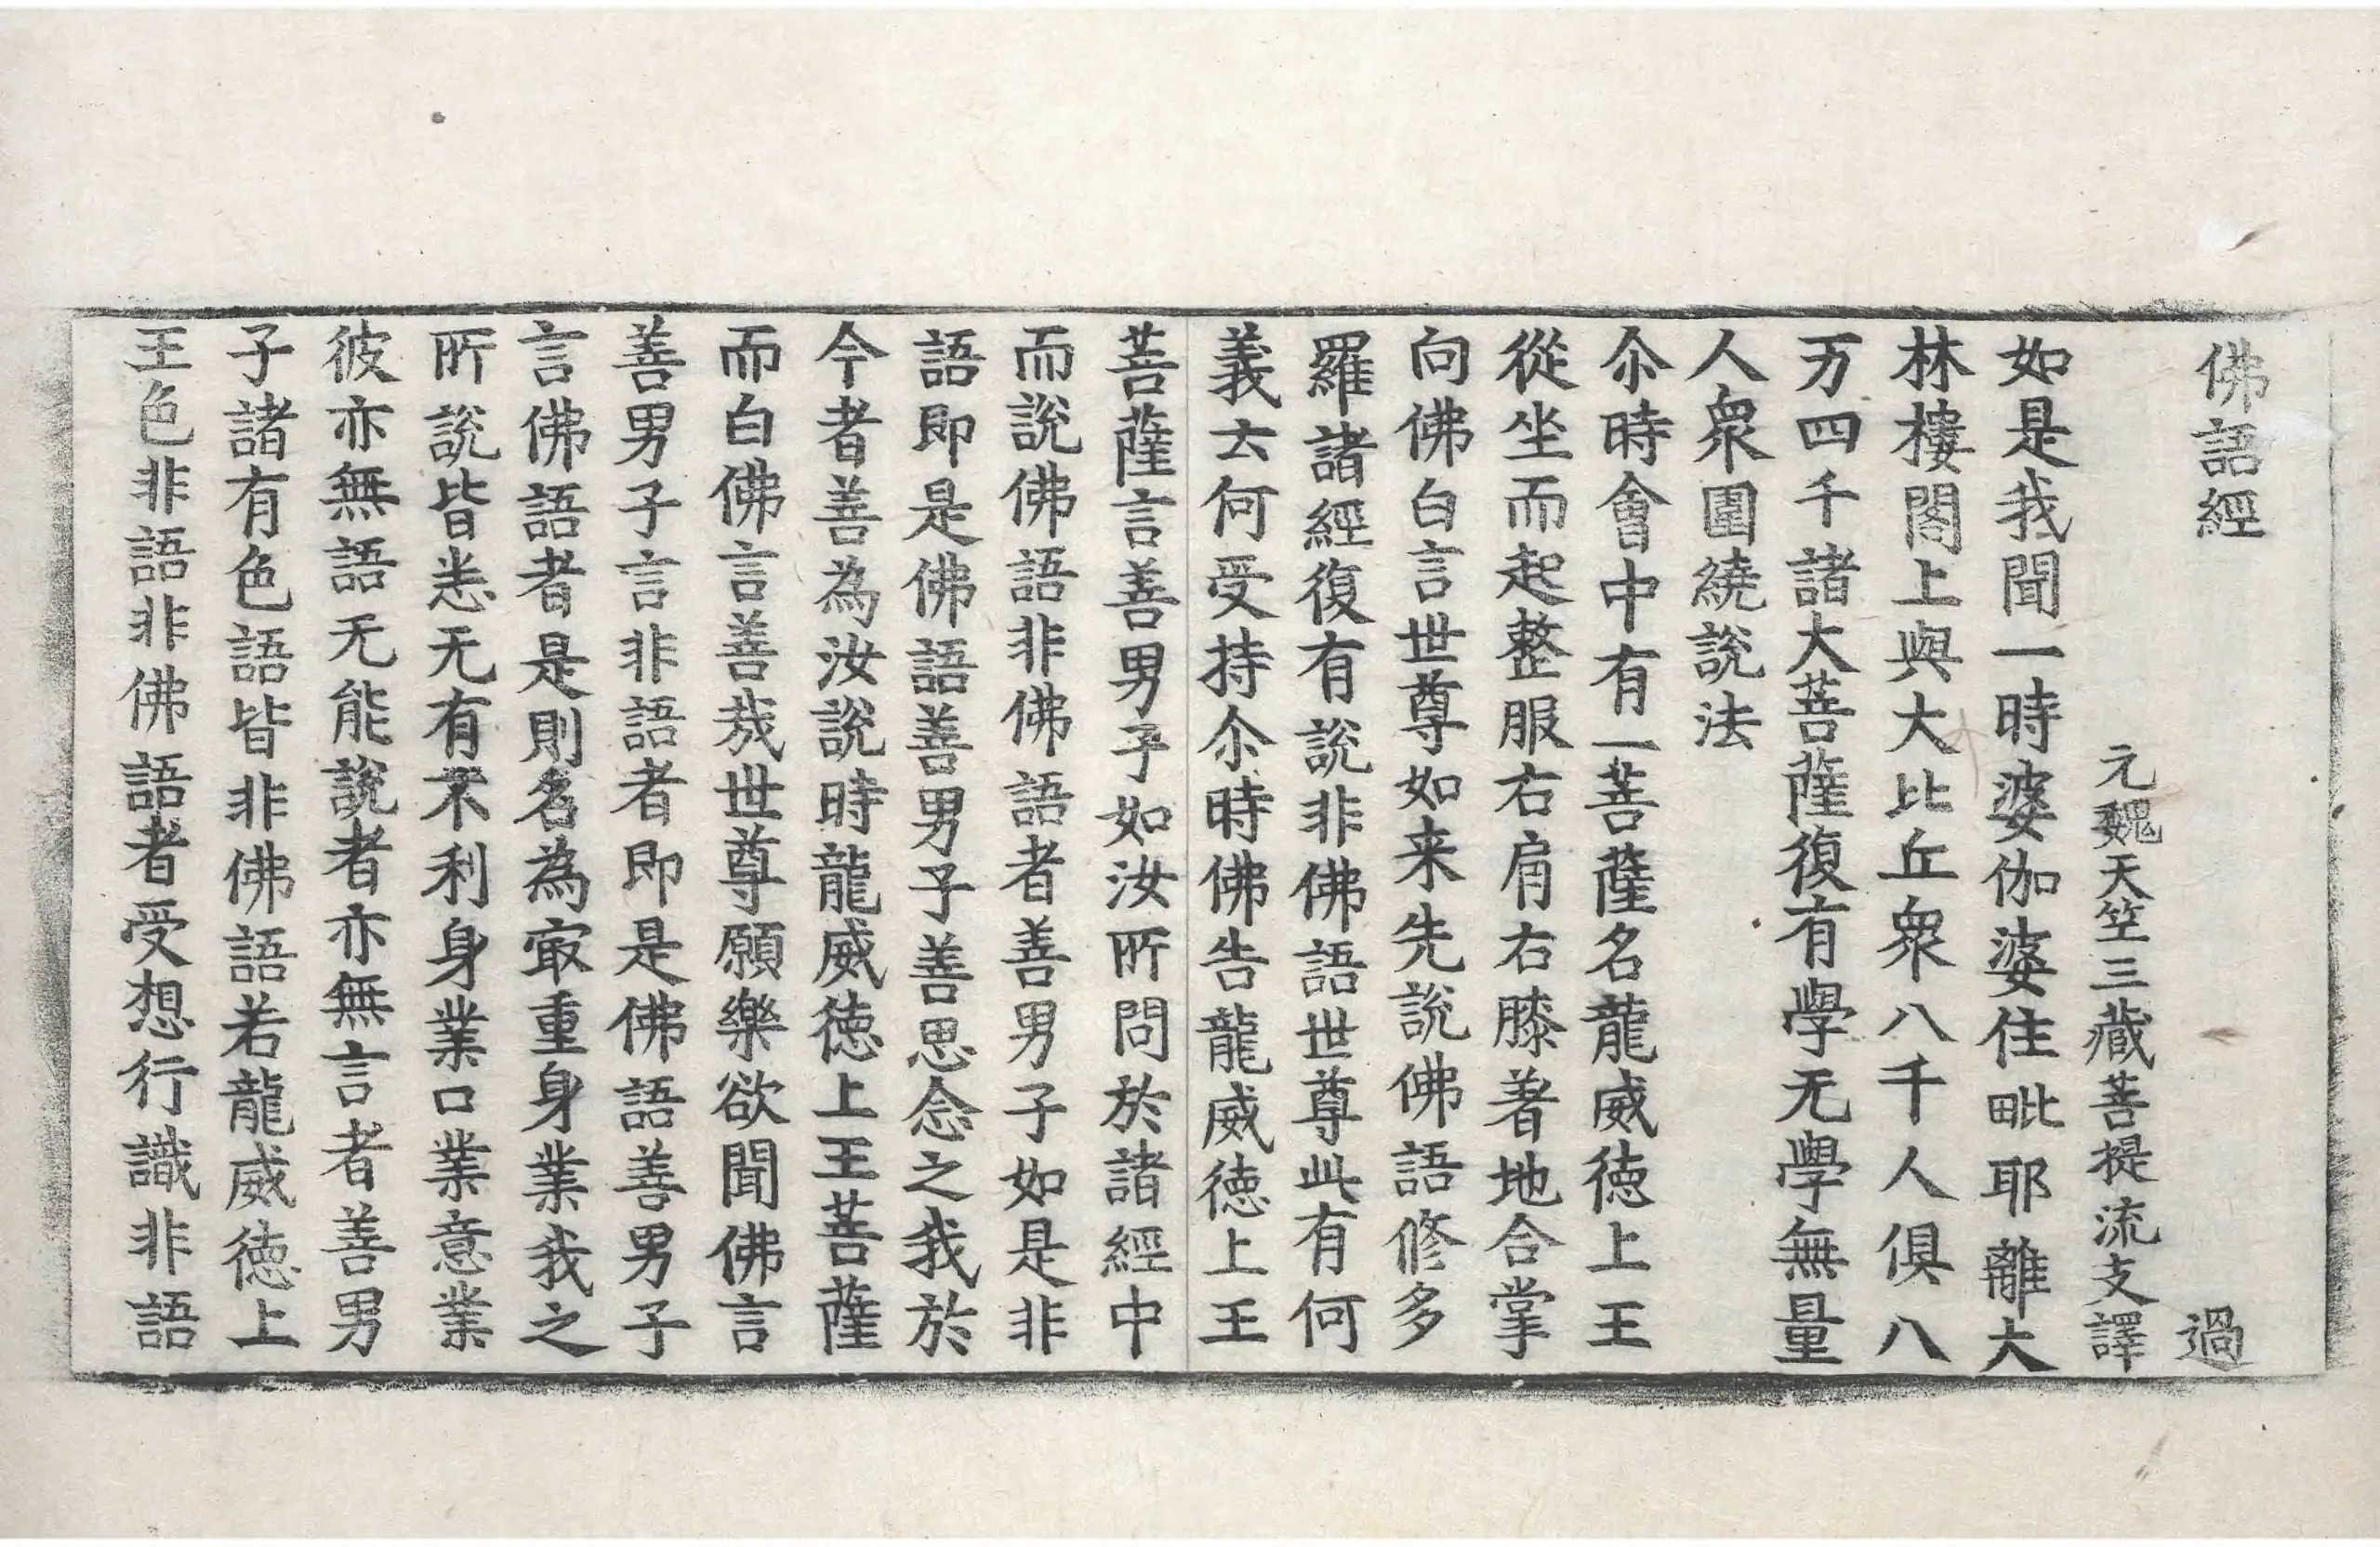 佛語經 過
元魏天竺三藏菩提流支譯
如是我聞一時婆伽婆住毗耶離大
林樓閣上與大比丘衆八千人俱八
万四千諸大菩薩復有學无學無量
人衆圍繞說法
尒時會中有一菩薩名龍威徳上王
從坐而起整服右肩右膝著地合掌
向佛白言世尊如来先說佛語修多
羅諸經復有說非佛語世尊此有何
義云何受持尒時佛告龍威徳上王
菩薩言善男子如汝所問於諸經中
而說佛語非佛語者善男子如是非
語即是佛語善男子善思念之我於
今者善為汝說時龍威徳上王菩薩
而白佛言善哉世尊願樂欲聞佛言
善男子言非語者即是佛語善男子
言佛語者是則名為㝡重身業我之
所說皆悉无有不利身業口業意業
彼亦無語无能說者亦無言者善男
子諸有色語皆非佛語若龍威徳上
王色非語非佛語者受想行識非語